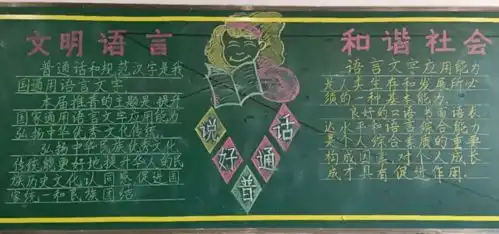 文明语言
普通话和规范汉字是我
国通用语言文字
本届推普的主题是提升
国家通用语言文字应用能力
弘扬中华优秀文化传统.
弘扬中华民族优秀文化
传统能更好地提升华人的民
族历史文化认同感促进国
家统一和民族团结
说 话
好 通
普
和谐社会
语言文字应用能力
是人类生存和发展所必
须的一种基本能力.
良好的口语书面语表
达水平和语言综合能力
是个人综合素质的重要
构成因素.对个人成长
成才具有促进作用.